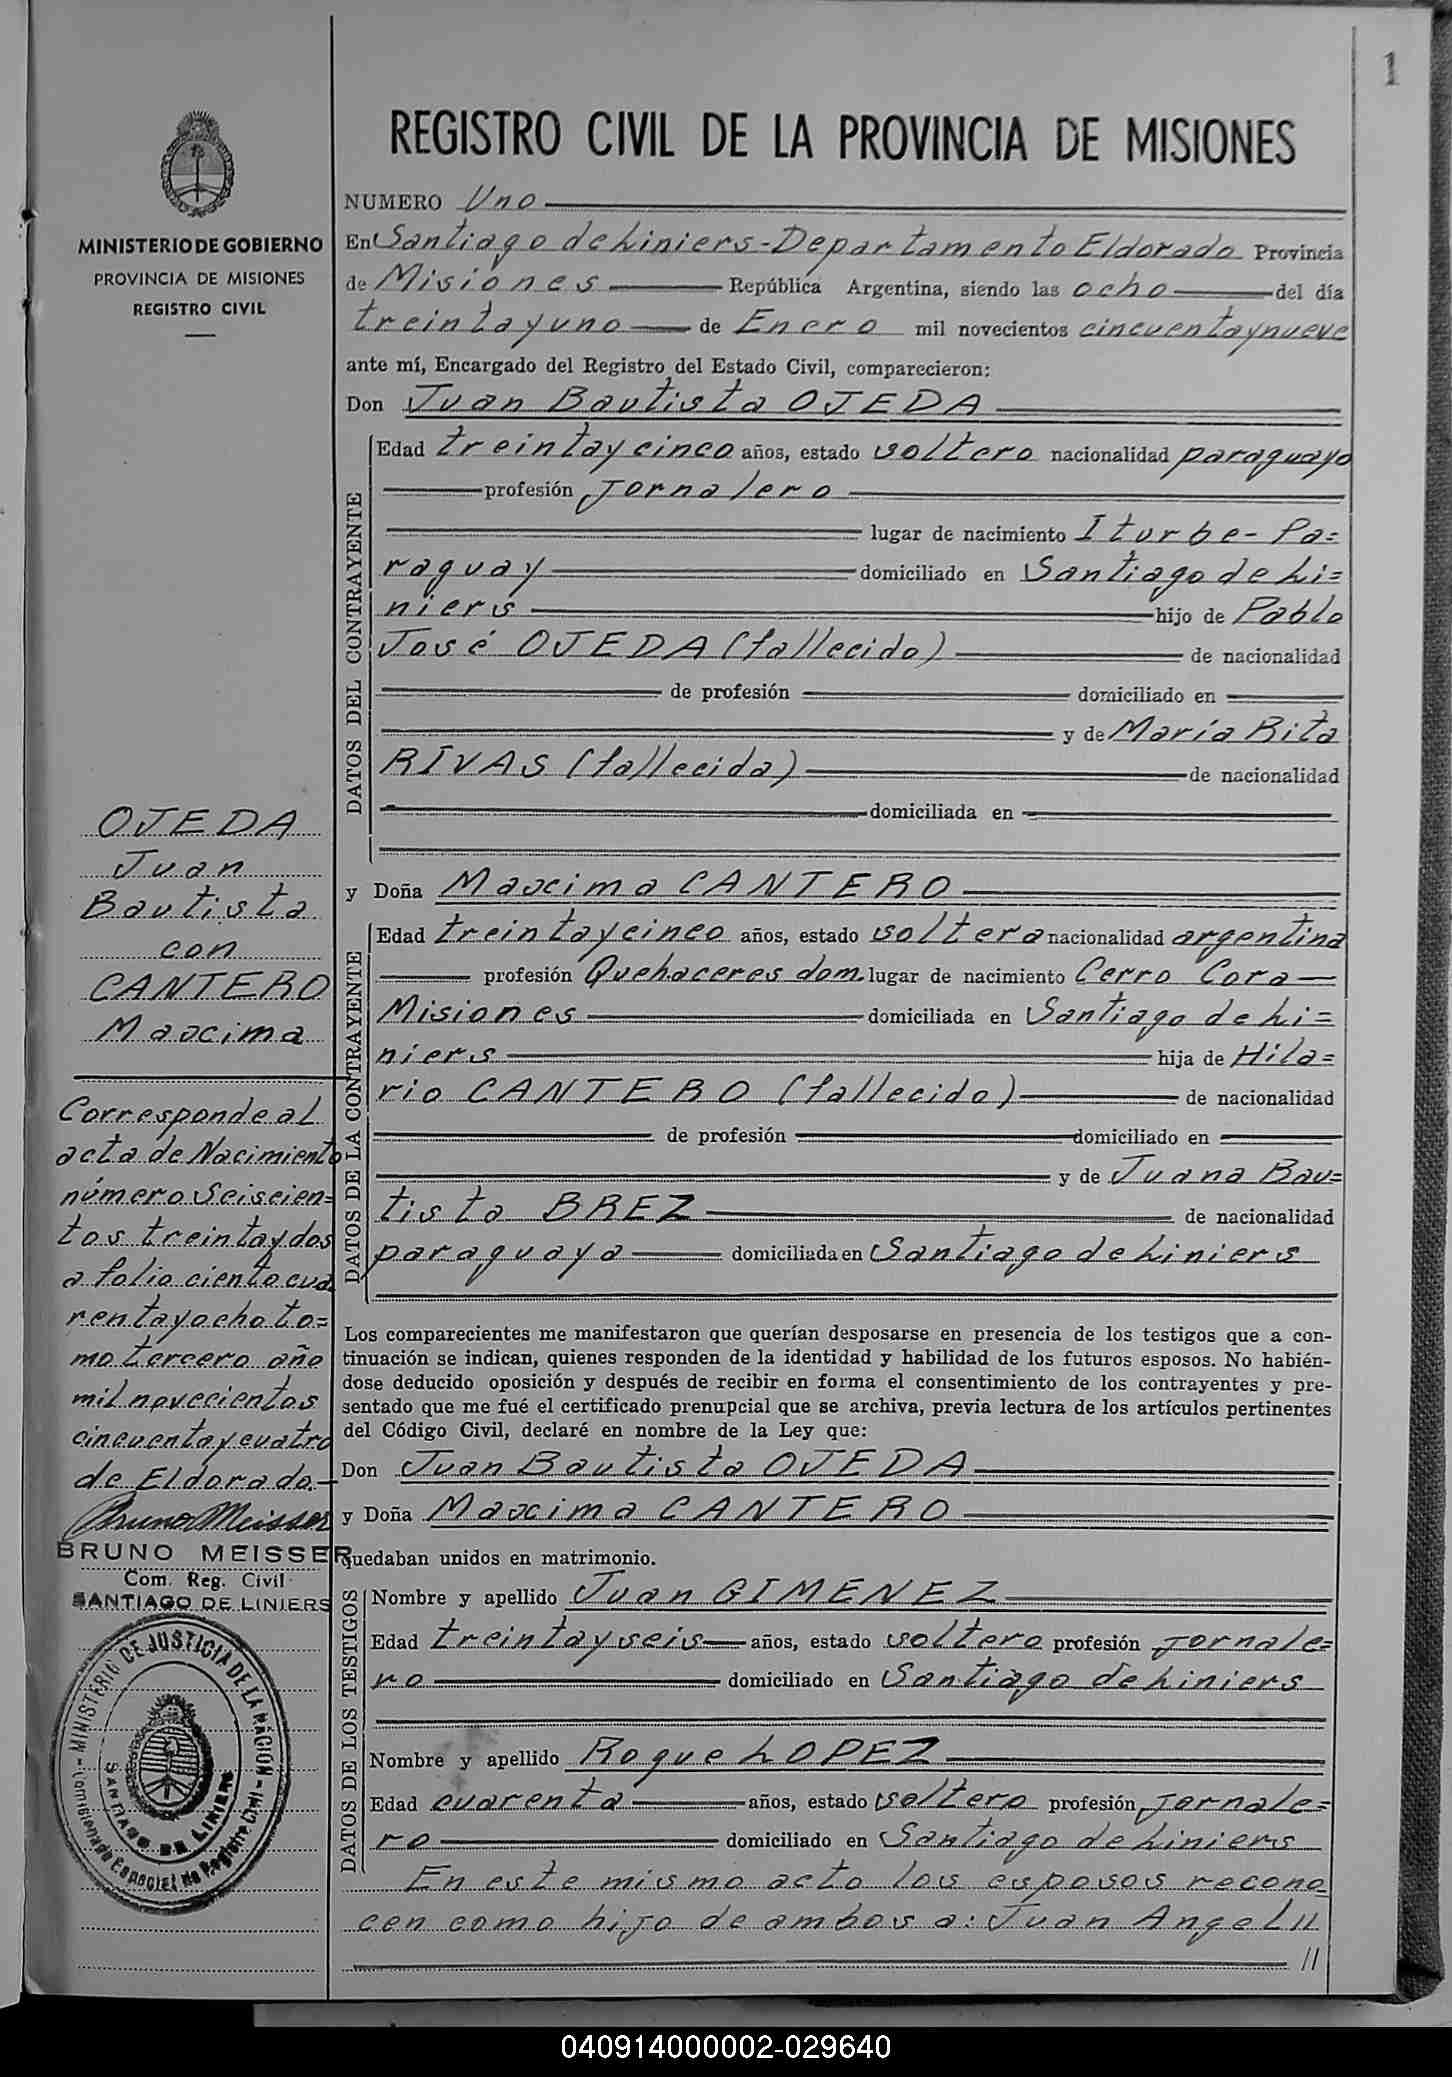 1
REGISTRO CIVIL DE LA PROVINCIA DE MISIONES
MINISTERIO DE GOBIERNO
PROVINCIA DE MISIONES
REGISTRO CIVIL
NUMERO Uno
En Santiago de Liniers - Departamento Eldorado Provincia
de Misiones República Argentina, siendo las ocho del día
treinta y uno de Enero mil novecientos cincuenta y nueve
ante mí, Encargado del Registro del Estado Civil, comparecieron:
Don Juan Bautista OJEDA
DATOS DEL CONTRAYENTE
Edad treinta y cinco años, estado soltero nacionalidad paraguayo
profesión jornalero
lugar de nacimiento Iturbe - Pa=
raguay domiciliado en Santiago de Li=
niers hijo de Pablo
José OJEDA (fallecido) de nacionalidad
de profesión domiciliado en
y de María Rita
RIVAS (fallecida) de nacionalidad
domiciliada en
y Doña Maxima CANTERO
DATOS DE LA CONTRAYENTE
Edad treinta y cinco años, estado soltera nacionalidad argentina
profesión Quehaceres dom. lugar de nacimiento Cerro Cora
Misiones domiciliada en Santiago de Li=
niers hija de Hila=
rio CANTERO (fallecido) de nacionalidad
de profesión domiciliado en
y de Juana Bau=
tista BREZ de nacionalidad
paraguaya domiciliada en Santiago de Liniers
Los comparecientes me manifestaron que querían desposarse en presencia de los testigos que a con-
tinuación se indican, quienes responden de la identidad y habilidad de los futuros esposos. No habién-
dose deducido oposición y después de recibir en forma el consentimiento de los contrayentes y pre-
sentado que me fué el certificado prenupcial que se archiva, previa lectura de los artículos pertinentes
del Código Civil, declaré en nombre de la Ley que:
Don Juan Bautista OJEDA
y Doña Maxima CANTERO
quedaban unidos en matrimonio.
DATOS DE LOS TESTIGOS
Nombre y apellido Juan GIMENEZ
Edad treinta y seis años, estado soltero profesión jornale=
ro domiciliado en Santiago de Liniers
Nombre y apellido Roque LOPEZ
Edad cuarenta años, estado soltero profesión jornale=
ro domiciliado en Santiago de Liniers
En este mismo acto los esposos recono
cen como hijo de ambos a: Juan Angel //
//
OJEDA
Juan
Bautista
con
CANTERO
Maxima
Corresponde al
acta de Nacimiento
número Seiscien=
tos treinta y dos
a folio ciento cua
renta y ocho to=
mo tercero año
mil novecientos
cincuenta y cuatro
de Eldorado.-
Bruno Meisser
BRUNO MEISSER
Com. Reg. Civil
SANTIAGO DE LINIERS
MINISTERIO DE JUSTICIA DE LA NACION
Comisionado Especial de Registro Civil
SANTIAGO DE LINIERS
040914000002-029640